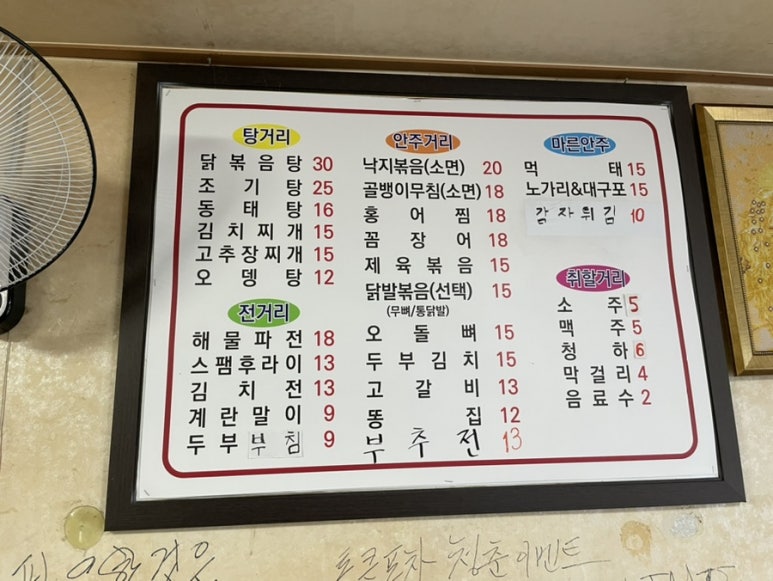 탕거리
닭볶음탕 30
조기탕 25
동태탕 16
김치찌개 15
고추장찌개 15
오뎅탕 12
전거리
해물파전 18
스팸후라이 13
김치전 13
계란말이 9
두부부침 9
안주거리
낙지볶음(소면) 20
골뱅이무침(소면) 18
홍어찜 18
꼼장어 18
제육볶음 15
닭발볶음(선택) 15
(무뼈/통닭발)
오돌뼈 15
두부김치 15
고갈비 13
똥집 12
부추전 13
마른안주
먹태 15
노가리&대구포 15
감자튀김 10
취할거리
소주 5
맥주 5
청하 6
막걸리 4
음료수 2
청춘이벤트